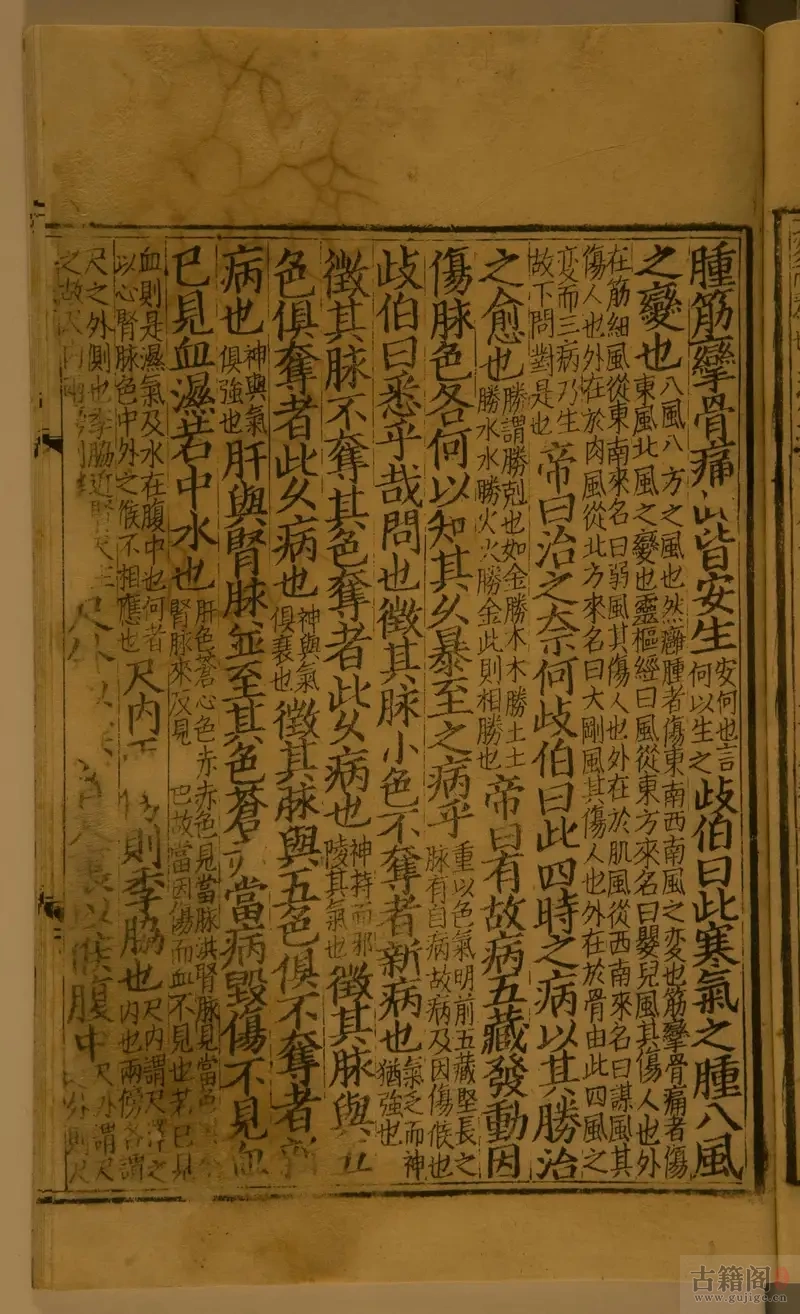 腫筋攣骨痛 皆安生安何也言何以生之歧伯曰此寒氣之腫八風
之變也八風八方之風也然癰腫者傷東南西南風之変也筋攣骨痛者傷東風北風之變也靈樞經曰風從東方來名曰嬰兒風其傷人也外
在筋細風從東南來名曰弱風其傷人也外在於肌風從西南來名曰謀風其傷人也外在於肉風從北方來名曰大剛風其傷人也外在於骨由此四風之
变而三病乃生故下問對是也帝曰治之柰何歧伯曰此四時之病以其勝治
之愈也勝謂勝剋也如金勝木木勝土土勝水水勝火火勝金此則相勝也帝曰有故病五藏發動因
傷脉色各何以知其久暴至之病乎重以色氣明前五藏堅長之脉有自病故病及因傷候也
歧伯曰悉乎哉問也徵其脉小色不奪者新病也氣乏而神猶強也
徵其脉不奪其色奪者此久病也神持而邪陵其氣也徵其脉與五
色俱奪者此久病也神與氣俱衰也徵其脉與五色俱不奪者
病也神與氣俱強也肝與腎脉並至其色蒼 當病毀傷不見血
已見血濕若中水也肝色蒼心色赤赤色見當脉洪腎脉見當 腎脉來反見 巴故當因傷而血不見也若已見
血則是濕氣及水在腹中也何者以心腎脉色中外之候不相應也尺內 則季脇也尺内謂尺澤之内也兩傍各謂
尺之外側也季脇近腎 之故 尺 以候腹中尺外謂尺 外側